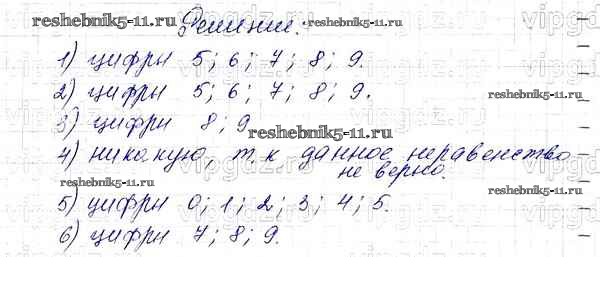 Решение:
reshebnik5-11.ru reshebnik5-11.ru
1) цифры 5; 6; 7; 8; 9.
2) цифры 5; 6; 7; 8; 9.
reshebnik5-11.ru
3) цифры 8; 9
reshebnik5-11.ru
4) никакую, т.к данное неравенство
не верно.
reshebnik5-11.ru
5) цифры 0; 1; 2; 3; 4; 5.
6) цифры 7; 8; 9.